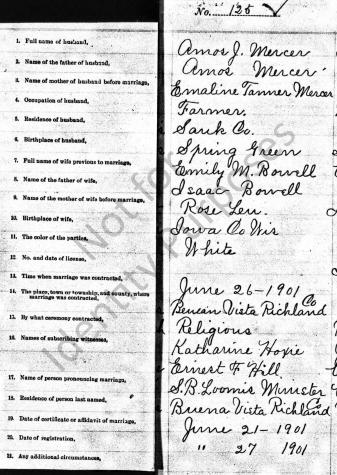 No. 125
1. Full name of husband, Amos J. Mercer
2. Name of the father of husband, Amos Mercer
3. Name of mother of husband before marriage, Emaline Tanner Mercer
4. Occupation of husband, Farmer.
5. Residence of husband, Sauk Co.
6. Birthplace of husband, Spring Green
7. Full name of wife previous to marriage, Emily M. Bowell
8. Name of the father of wife, Isaac Bowell
9. Name of the mother of wife before marriage, Rose
10. Birthplace of wife, Iowa Co Wis
11. The color of the parties, White
12. No. and date of license,
13. Time when marriage was contracted, June 26-1901
14. The place, town or township, and county, where
marriage was contracted, Vista Richland Co
15. By what ceremony contracted, Religious
16. Names of subscribing witnesses, Katharine Hoxie
Ernest F. Hill
17. Name of person pronouncing marriage, S.B. Loomis Minister
18. Residence of person last named, Buena Vista Richland Co
19. Date of certificate or affidavit of marriage, June 21-1901
20. Date of registration, " 27 1901
21. Any additional circumstances,
Not for
Identity Purposes